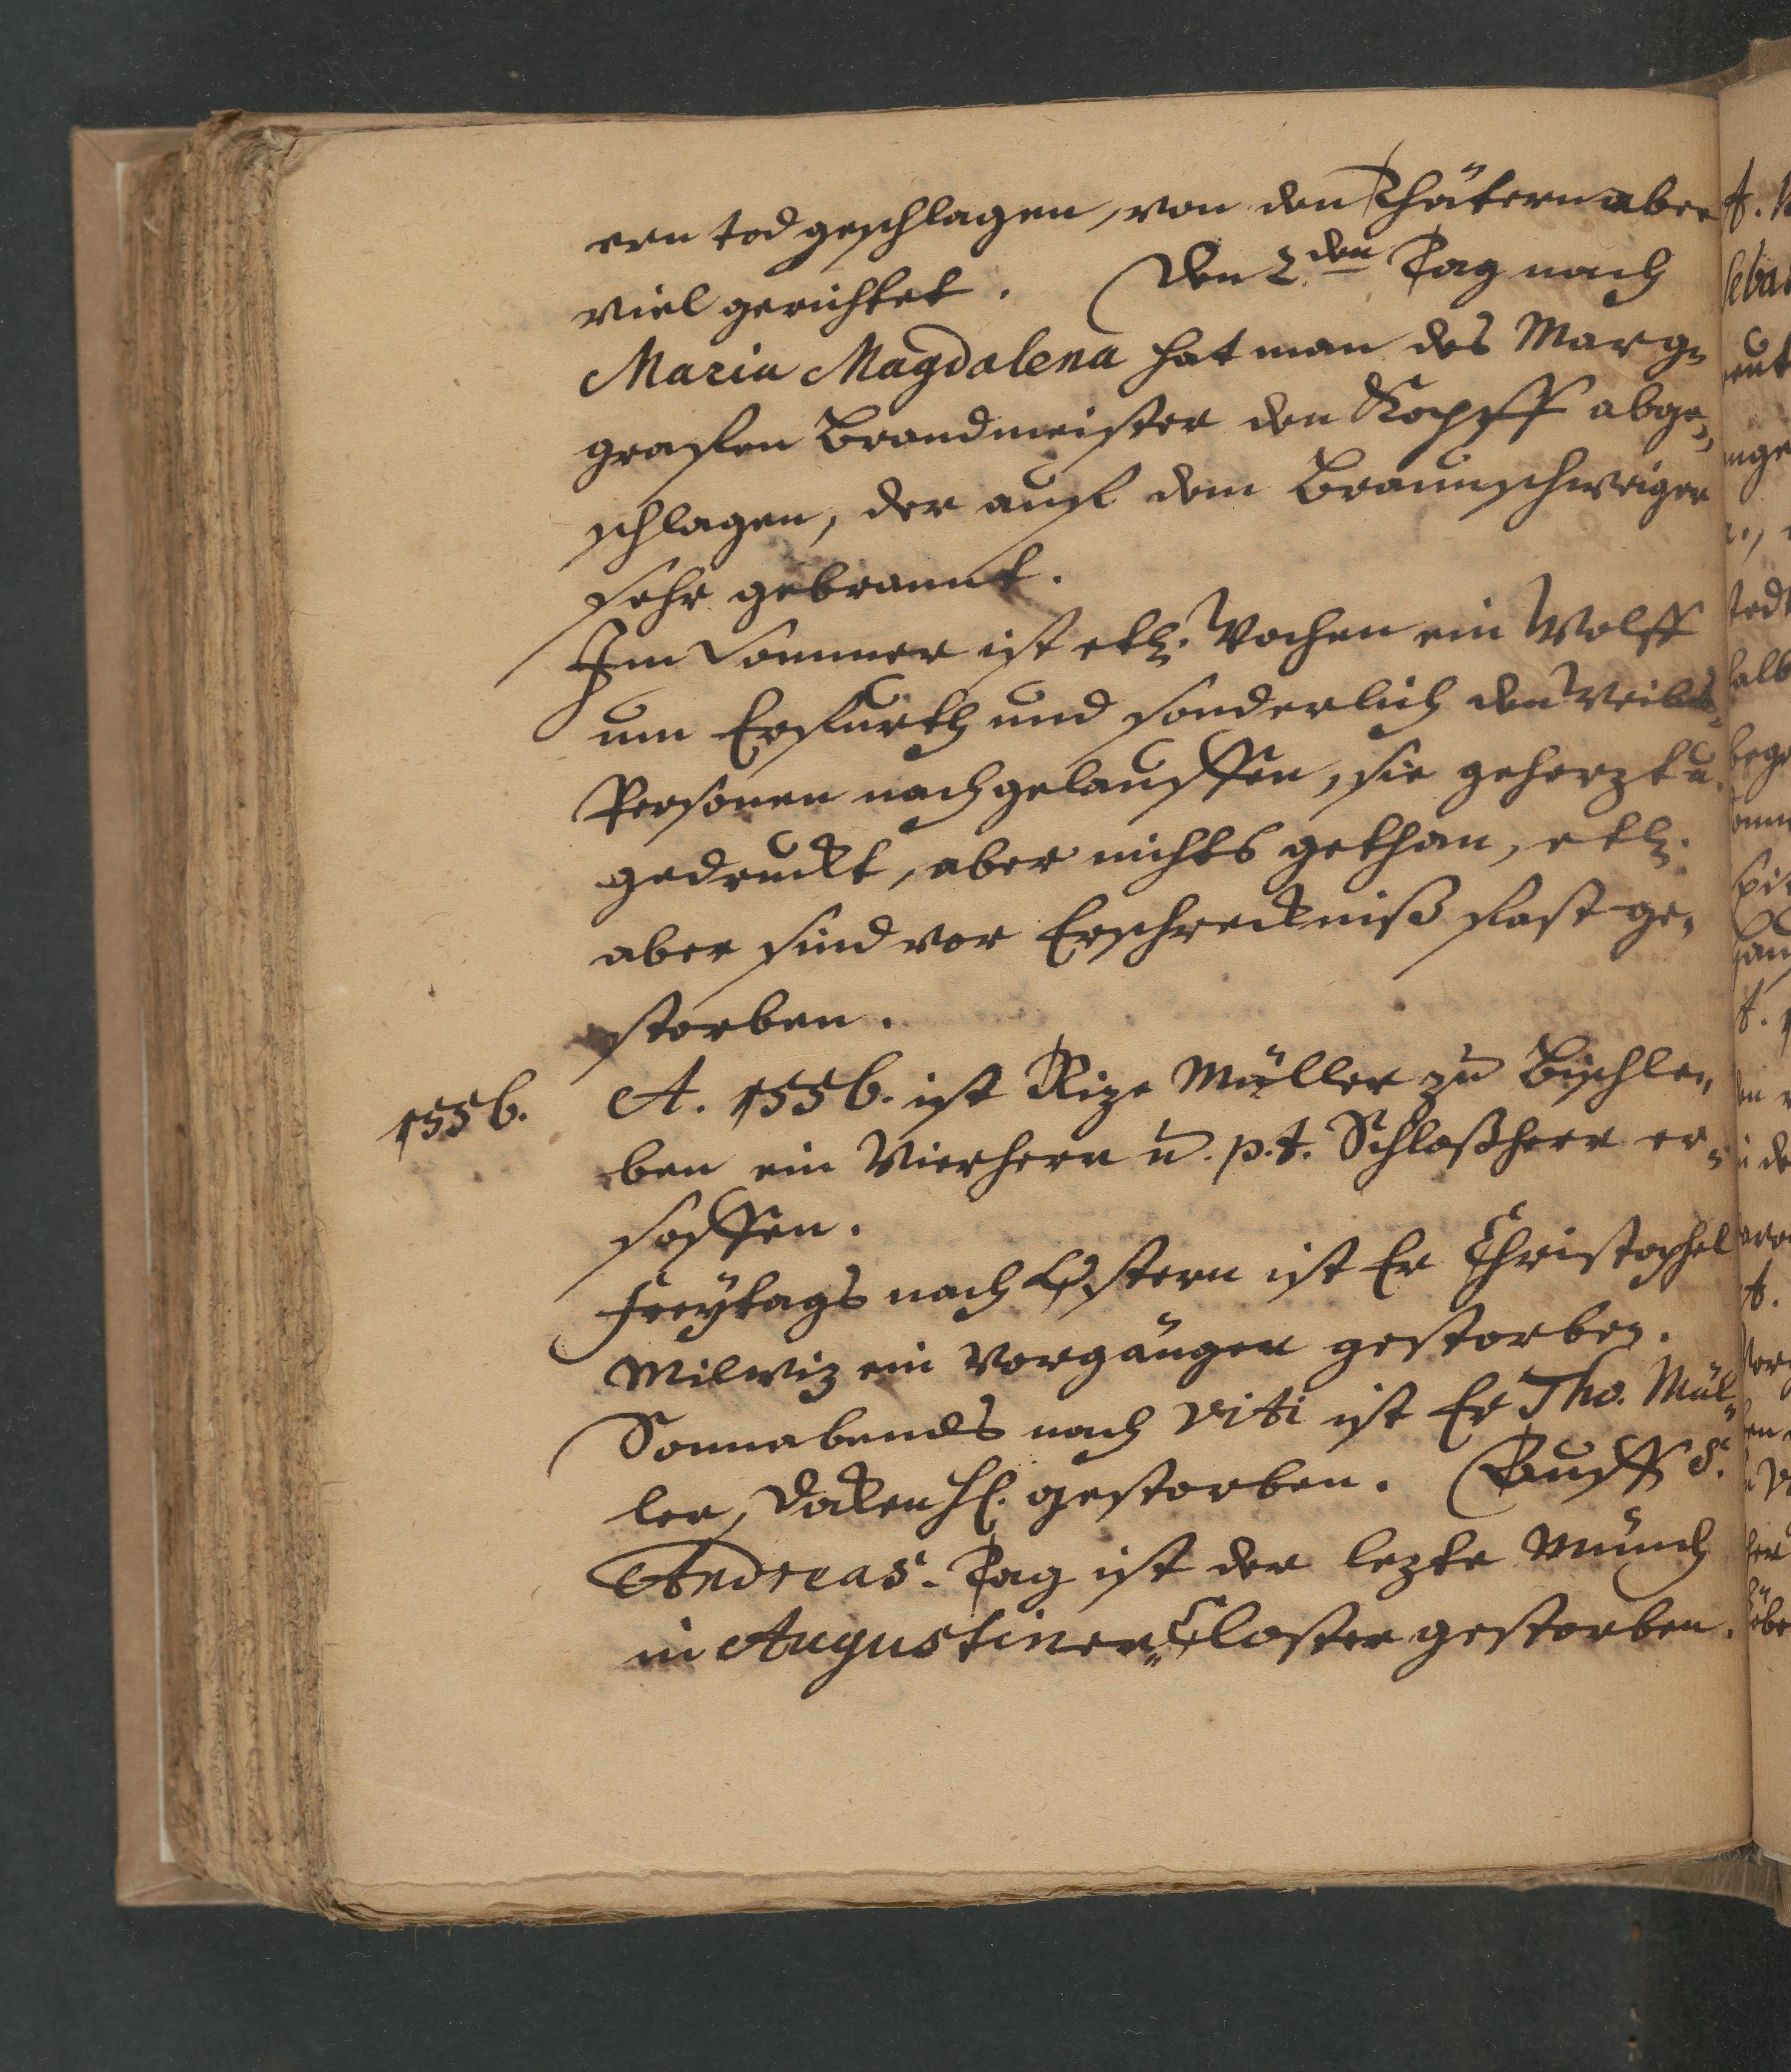 ren tod geschlagen, von den Thätern aber
viel gerichtet. Den 2.den Tag nach
Maria Magdalena hat man des Marg-
grafen Brandmeister den Kopff abge-
schlagen, der auf dem Braunschweiger
sehr gebrannt.
Im Sommer ist etl. Wochen ein Wolff
um Erfurth und sonderlich den Weibs-
Personen nachgelauffen, sie geherzt u.
gedruckt, aber nichts gethan, etl.
aber sind vor Erschreckniß fast ge-
storben.
1556. A. 1556. ist Rize Müller zu Bischle-
ben ein Vierherr u. p. t. Schloßherr er-
soffen.
Freytags nach Ostern ist Er Christophel
Milwiz ein Vorgänger gestorben.
Sonnabends nach Viti ist Er Tho. Mül-
ler, gestorben. Auff S.
Andreas-Tag ist der lezte Münch
in Augustiner-Closter gestorben.